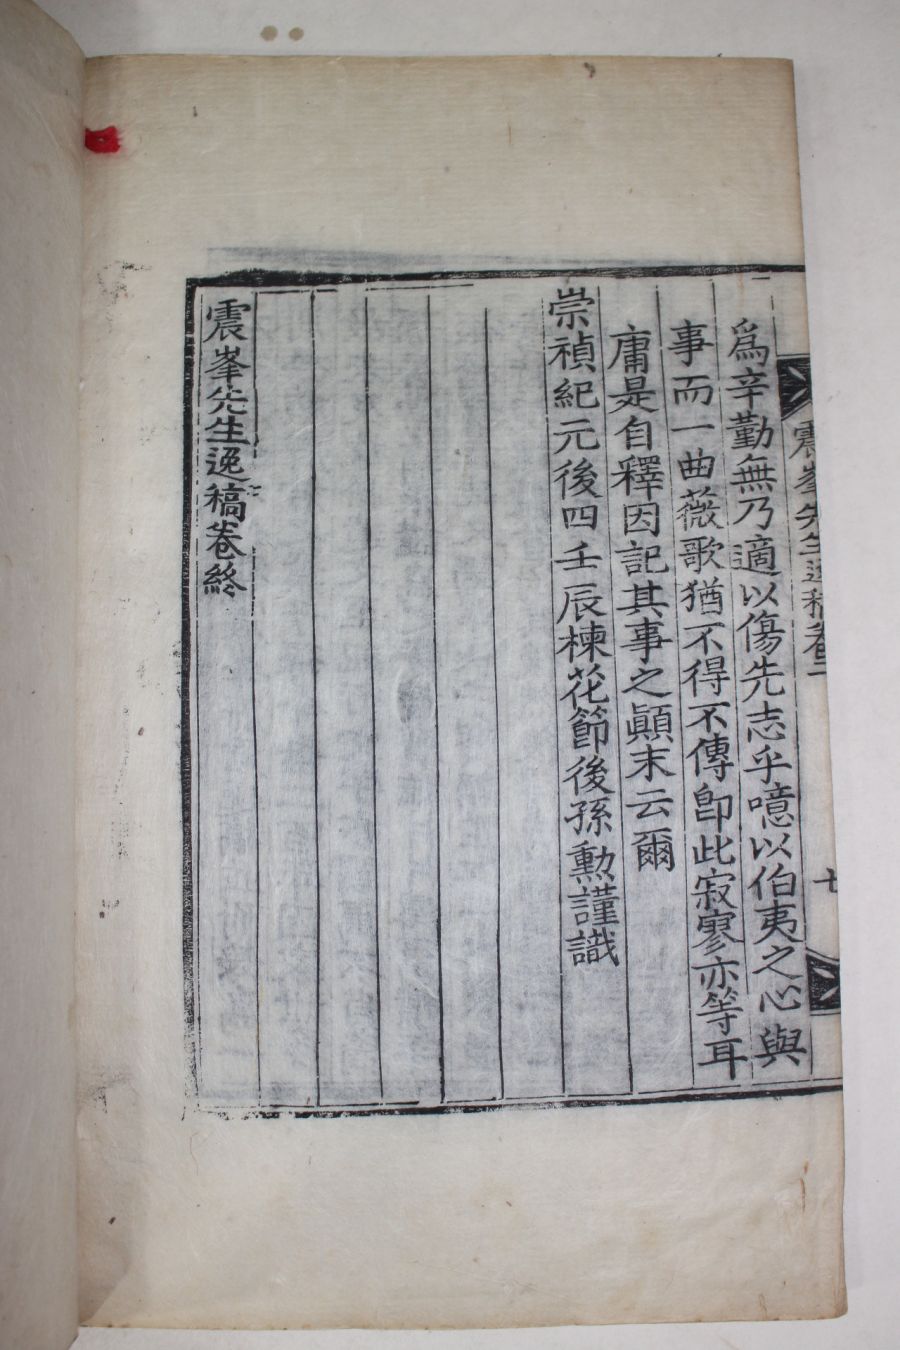 震峯先生逸稿卷二
七
爲辛勤無乃適以傷先志乎噫以伯夷之心與
事而一曲薇歌猶不得不傳卽此寂寥亦等耳
庸是自釋因記其事之顚末云爾
崇禎紀元後四壬辰楝花節後孫勳謹識
震峯先生逸稿卷終